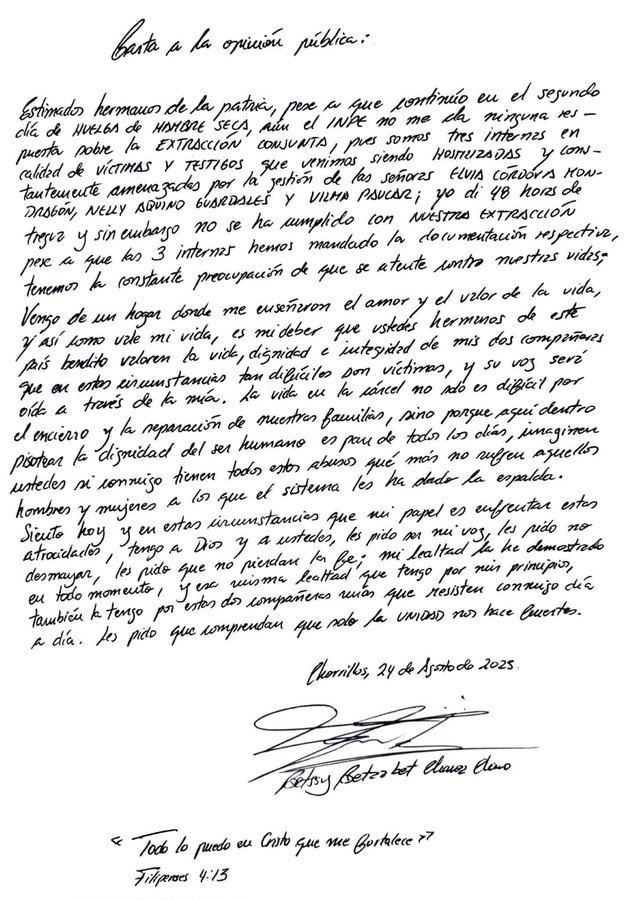 Carta a la opinión pública:
Estimados hermanos de la patria, pese a que continúo en el segundo
día de HUELGA de HAMBRE SECA, aún el INPE no me da ninguna res-
puesta sobre la EXTRACCIÓN CONJUNTA, pues somos tres internas en
calidad de VÍCTIMAS Y TESTIGOS que venimos siendo HOSTILIZADAS y cons-
tantemente amenazadas por la gestión de las señoras ELVIA CÓRDOVA MON-
DRAGÓN, NELLY AQUINO GUARDALES Y VILMA PAUCAR; yo di 48 horas de
tregua y sin embargo no se ha cumplido con NUESTRA EXTRACCIÓN
pese a que las 3 internas hemos mandado la documentación respectiva,
tenemos la constante preocupación de que se atente contra nuestras vidas;
Vengo de un hogar donde me enseñaron el amor y el valor de la vida,
y así como vale mi vida, es mi deber que ustedes hermanos de este
país bendito valoren la vida, dignidad e integridad de mis dos compañeras
que en estas circunstancias tan difíciles son víctimas, y su voz será
oída a través de la mía. La vida en la cárcel no solo es difícil por
el encierro y la separación de nuestras familias, sino porque aquí dentro
pisotear la dignidad del ser humano es pan de todos los días, imaginen
ustedes si conmigo tienen todos estos abusos qué más no sufren aquellos
hombres y mujeres a los que el sistema les ha dado la espalda.
Siento hoy y en estas circunstancias que mi papel es enfrentar estas
atrocidades, tengo a Dios y a ustedes, les pido ser mi voz, les pido no
desmayar, les pido que no pierdan la fe; mi lealtad la he demostrado
en todo momento, y esa misma lealtad que tengo por mis principios,
también la tengo por estas dos compañeras mías que resisten conmigo día
a día. Les pido que comprendan que solo la UNIDAD nos hace fuertes.
Chorrillos, 24 de Agosto de 2025
Betssy Betzabet Chavez Chino
"Todo lo puedo en Cristo que me fortalece"
Filipenses 4:13